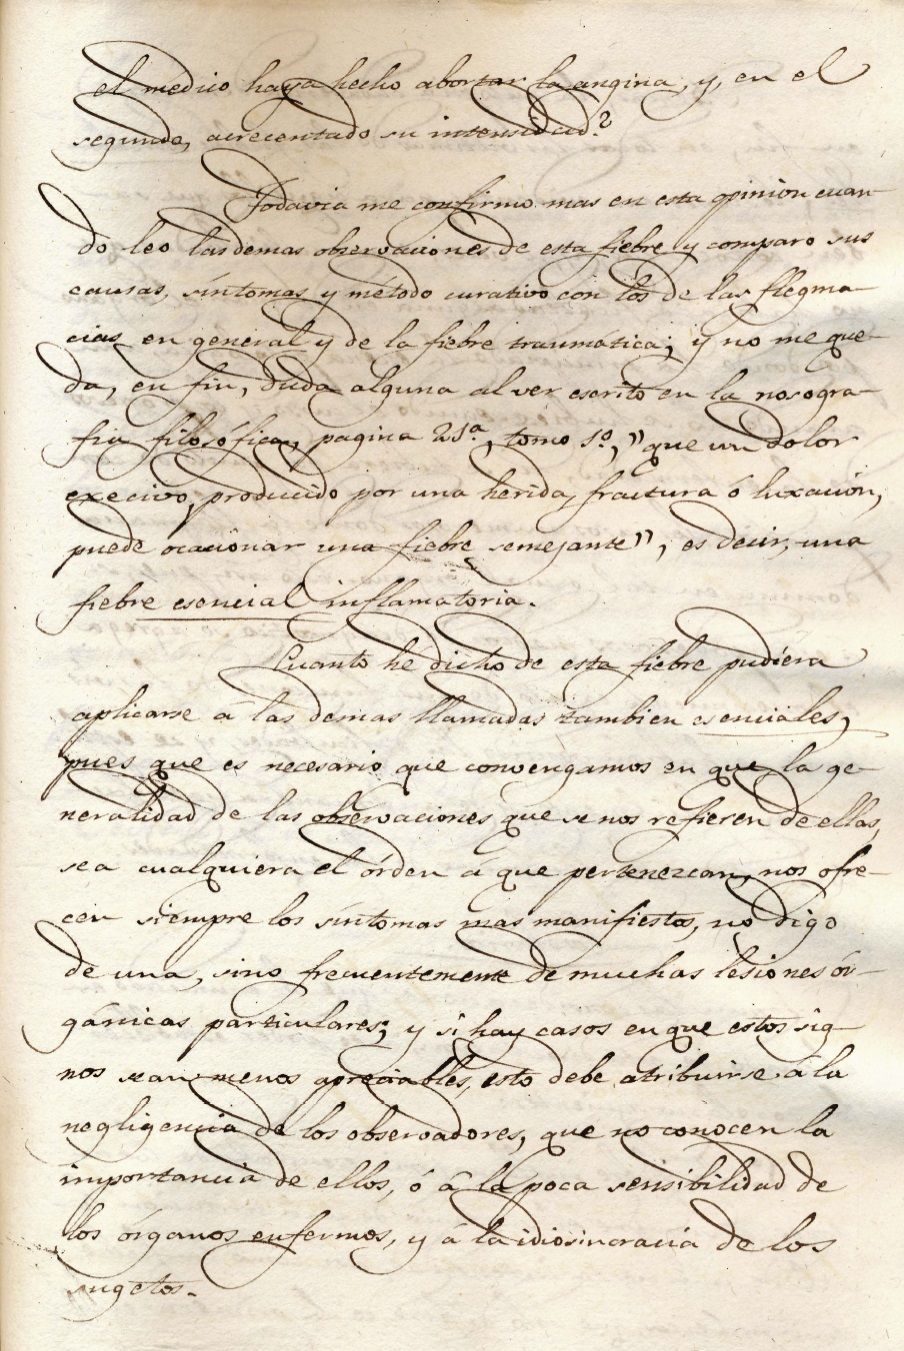 el medico haya hecho abortar la angina, y, en el
segundo, acrecentado su intensidad?
Todavia me confirmo mas en esta opinion cuan-
do leo las demas observaciones de esta fiebre y comparo sus
causas, síntomas y método curativo con los de las flegma-
cias en general y de la fiebre traumática; y no me que-
da, en fin, duda alguna al ver escrito en la nosogra-
fia filosófica, pagina 21ª, tomo 1º, "que un dolor
execivo, producido por una herida, fractura ó luxación,
puede ocacionar una fiebre semejante", es decir, una
fiebre esencial inflamatoria.
Cuanto he dicho de esta fiebre pudiera
aplicarse á las demas llamadas tambien esenciales,
pues que es necesario que convengamos en que la ge-
neralidad de las observaciones que se nos refieren de ellas,
sea cualquiera el órden á que pertenezcan, nos ofre-
cen siempre los síntomas mas manifiestos, no digo
de una, sino frecuentemente de muchas lesiones ór-
gánicas particulares; y si hay casos en que estos sig-
nos sean menos apreciables, esto debe atribuirse á la
negligencia de los observadores, que no conocen la
importancia de ellos, ó á la poca sensibilidad de
los órganos enfermos, y á la idiosincracia de los
sugetos.